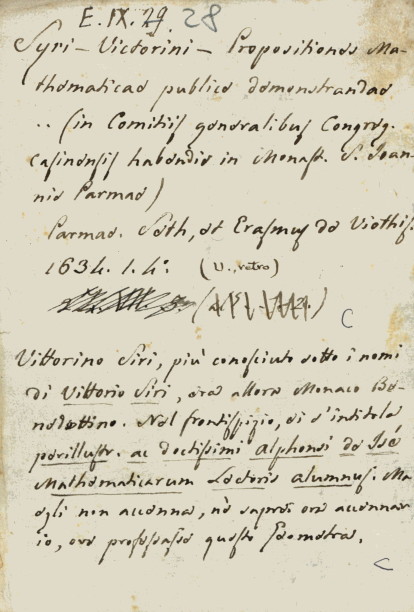 E. IX. 29 28
Syri – Victorini – Propositiones Ma-
thematicae publice demonstrandae
.. (in Comitijs generalibus Congreg.
casinensis habendis in Monast. S. Joan-
nis Parmae)
Parmae. Seth, et Erasmus de Viothis.
1634. 1. 4°. (V., retro)
C
Vittorino Siri, più conosciuto sotto i nomi
di Vittorio Siri, era allora Monaco Be-
nedettino. Nel frontispizio, ei s'intitola
perillustr. ac doctissimi Alphonsi de Isè
Mathematicarum Lectoris alumnus. Ma
egli non accenna, nè saprei ora accennar
io, ove professasse questo Geometra.
C